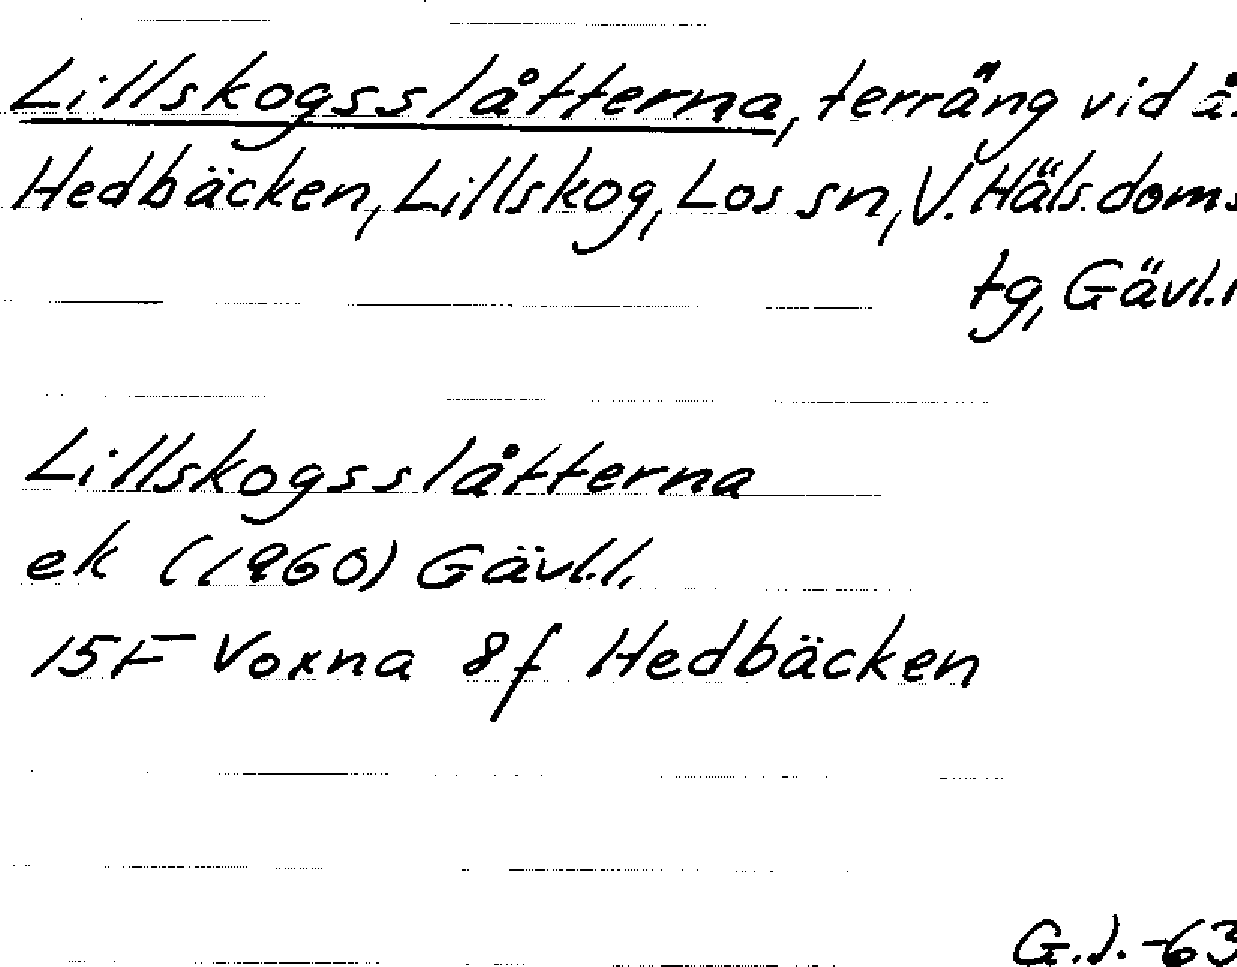 Lillskogsslåtterna, terräng vid å.
Hedbäcken, Lillskog, Los sn, V. Häls. doms
tg, Gävl.l
Lillskogsslåtterna
ek (1960) Gävl.l.
15F Voxna 8f Hedbäcken
G.J. -63